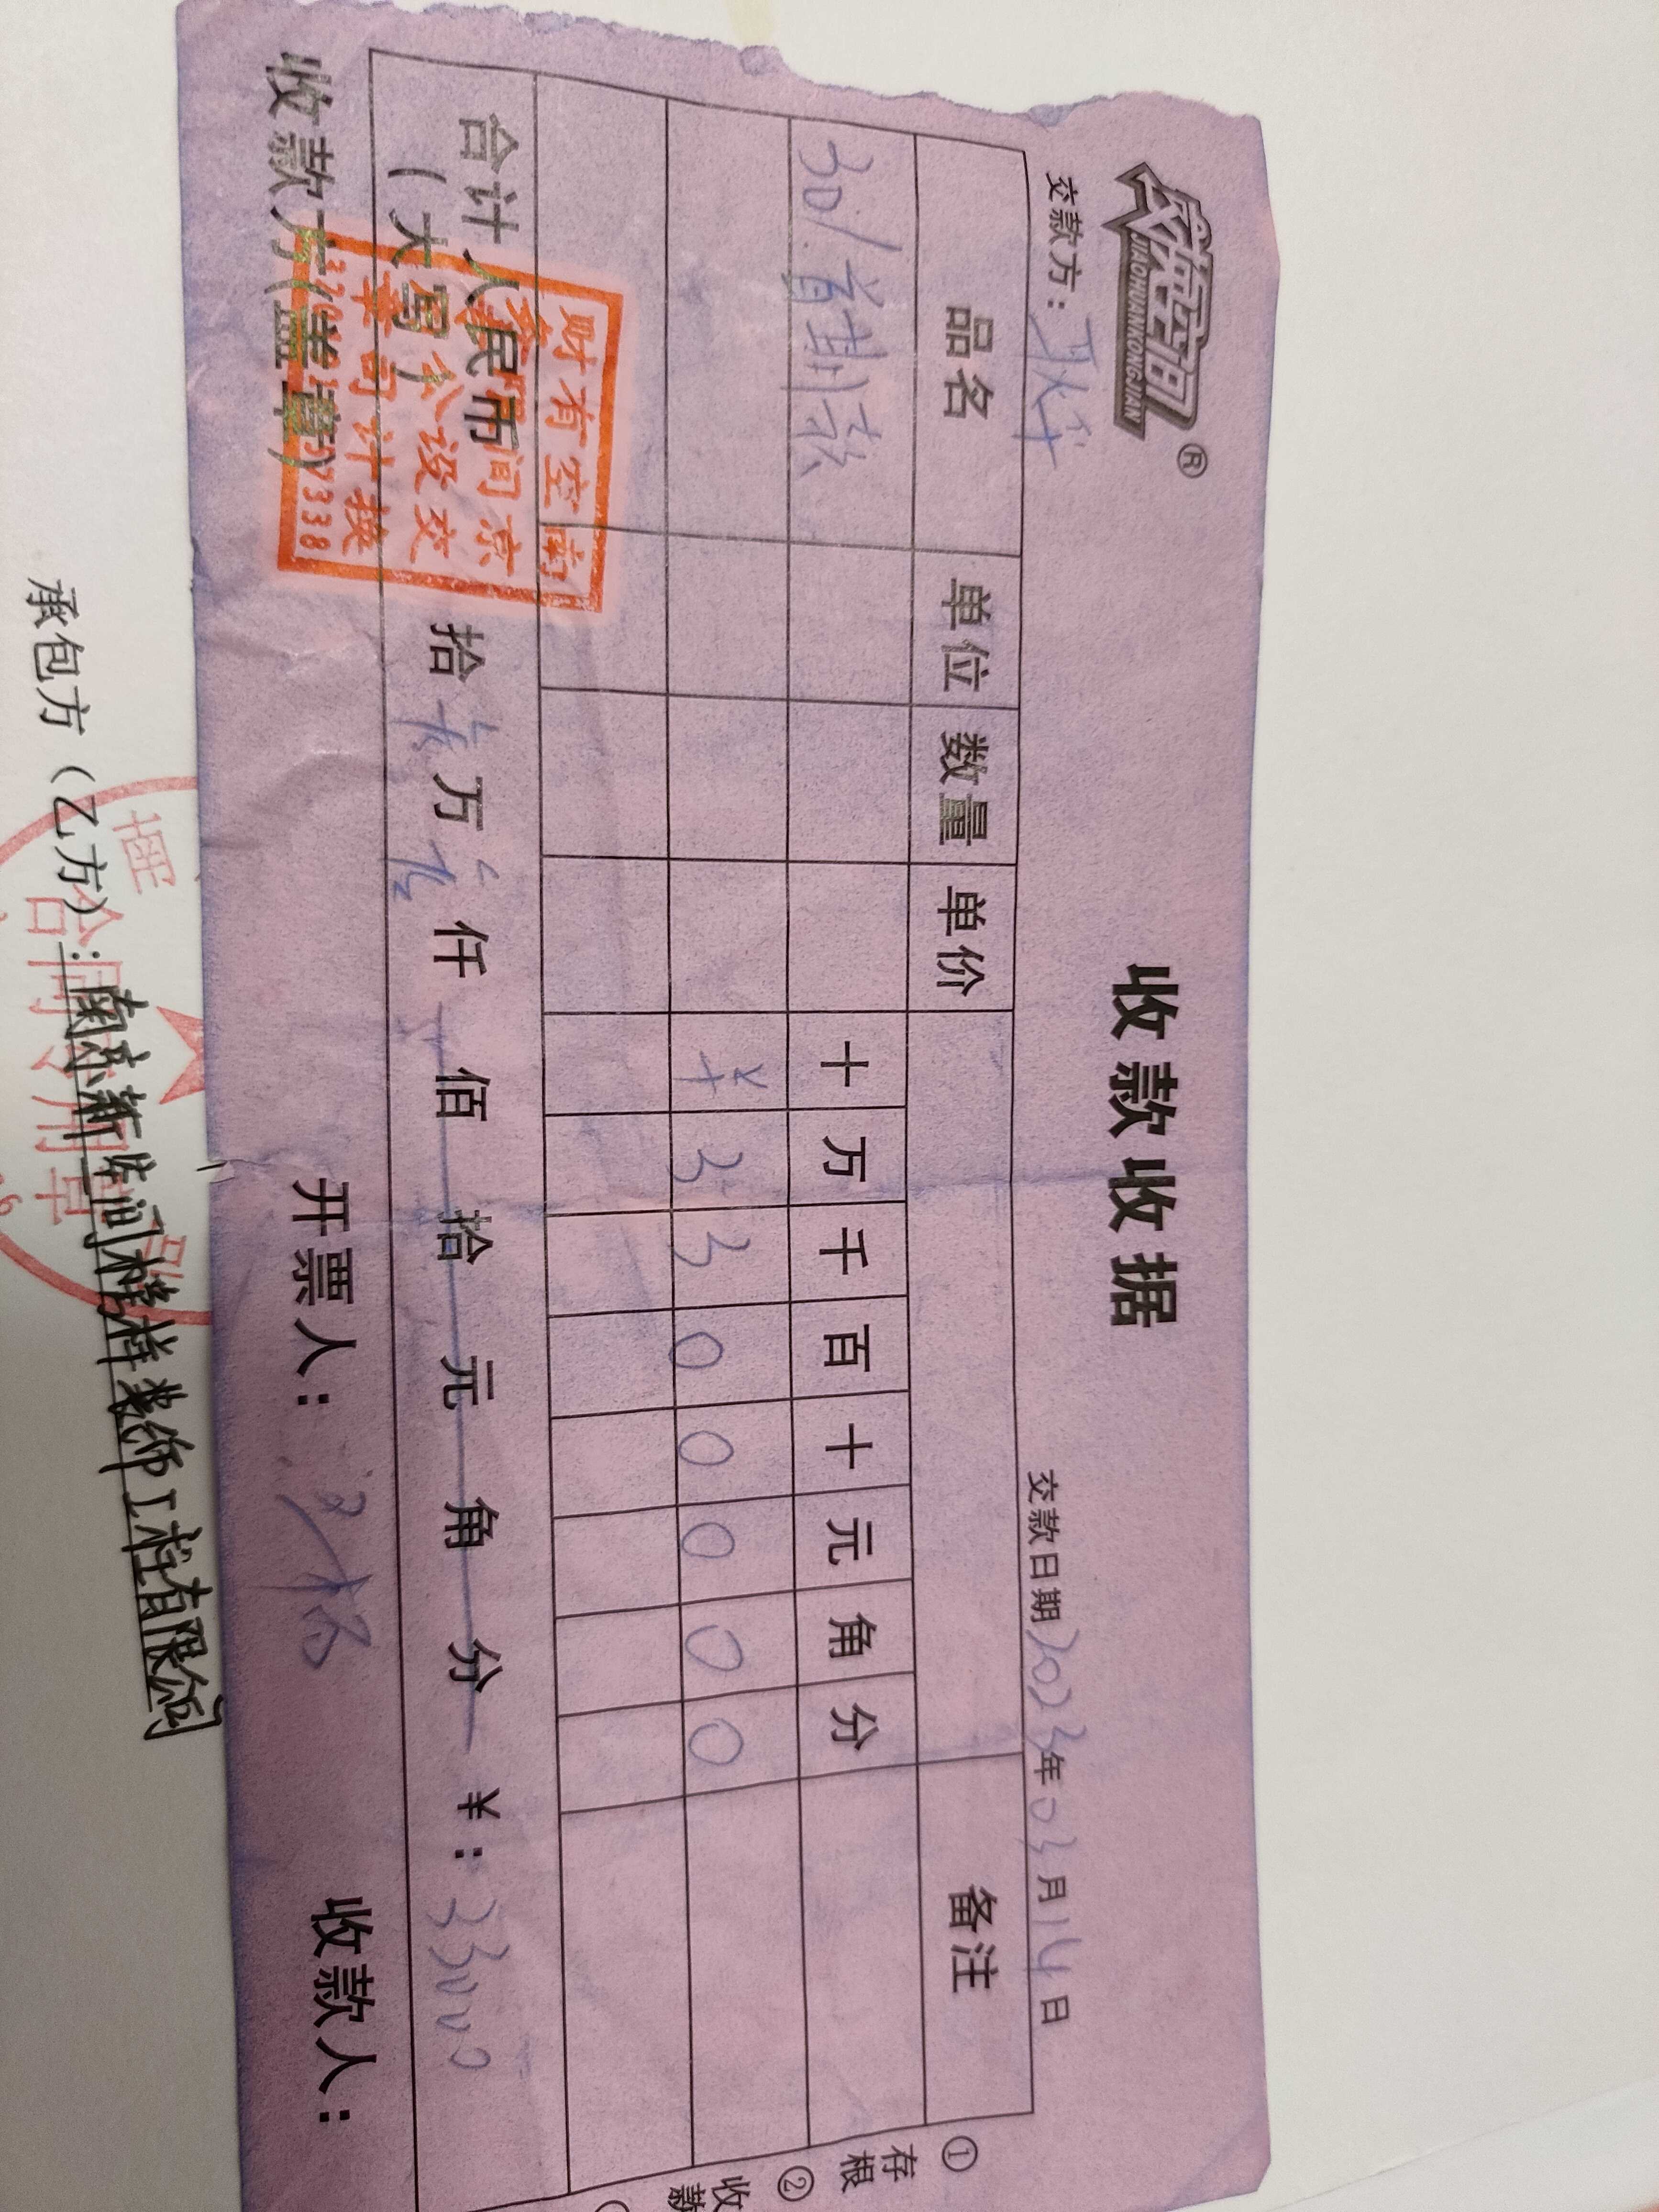 交换空间®
JIAOHUANKONGJIAN
收款收据
交款方：
交款日期2023年03月14日
品名 单位 数量 单价 十 万 千 百 十 元 角 分 备注
301首期款
¥ 3 3 0 0 0 0 0
合计人民币（大写） 拾 叁 万 叁 仟 佰 拾 元 角 分 ¥：33000
收款方（盖章） 开票人： 收款人：
①存根
②收款
南京交换
空间设计
有限公司
财务章
承包方（乙方）：南京新空间榜样装饰工程有限公司
合同专用章